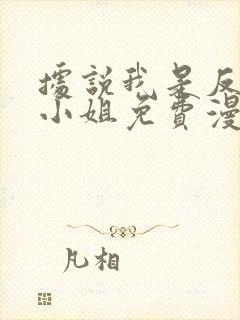 據說我是反
小姐免費漫
凡相